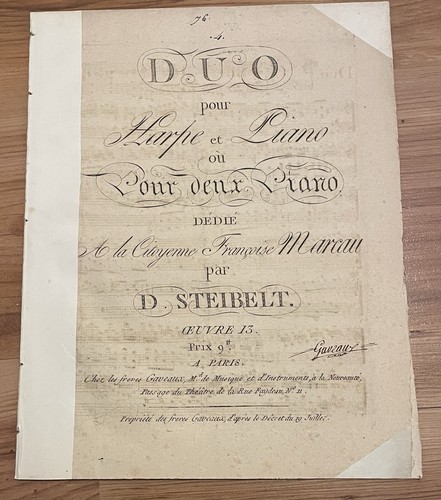 76
.4.
DUO
pour
Harpe et Piano
ou
Pour deux Piano.
DEDIÉ
A la Citoyenne Françoise Marcau
par
D. STEIBELT.
ŒUVRE 13.
Prix 9ᵗᵗ
A PARIS.
Gaveaux
Chez les freres Gaveaux, Mᵈ. de Musique et d'Instruments, à la Nouveauté,
Passage du Théâtre de la Rue Faydeau, Nº. 11.
Propriété des freres Gaveaux, d'après le Décret du 19 Juillet.